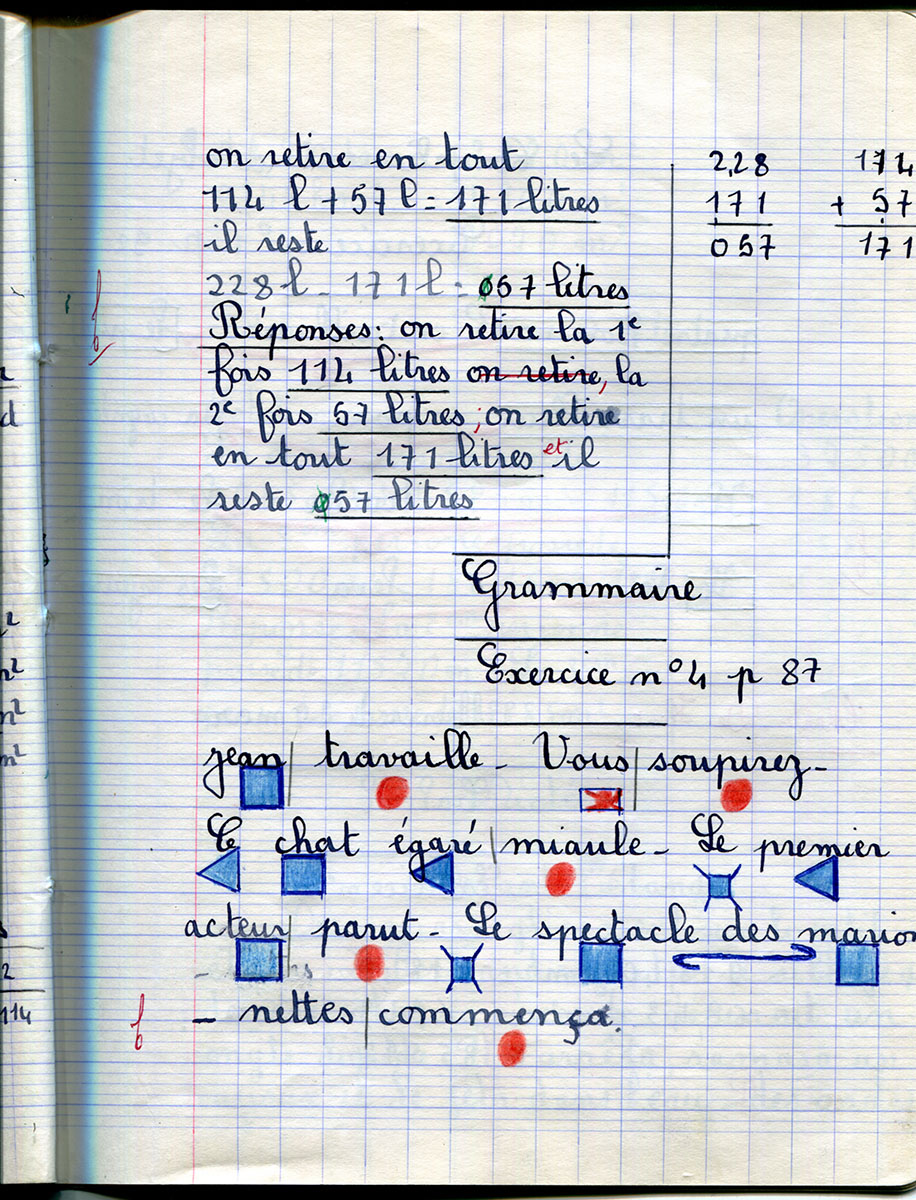 on retire en tout
114 l + 57 l = 171 litres
il reste
228 l - 171 l = 057 litres
Réponses: on retire la 1e
fois 114 litres on retire, la
2e fois 57 litres ; on retire
en tout 171 litres et il
reste 057 litres
2,28
171
057
174
+ 57
171
Grammaire
Exercice n° 4 p 87
jean | travaille - Vous | soupirez -
Ce chat égaré | miaule - Le premier
acteur | parut - Le spectacle des mario
- nettes | commença.
d
m²
m²
m²
2
114